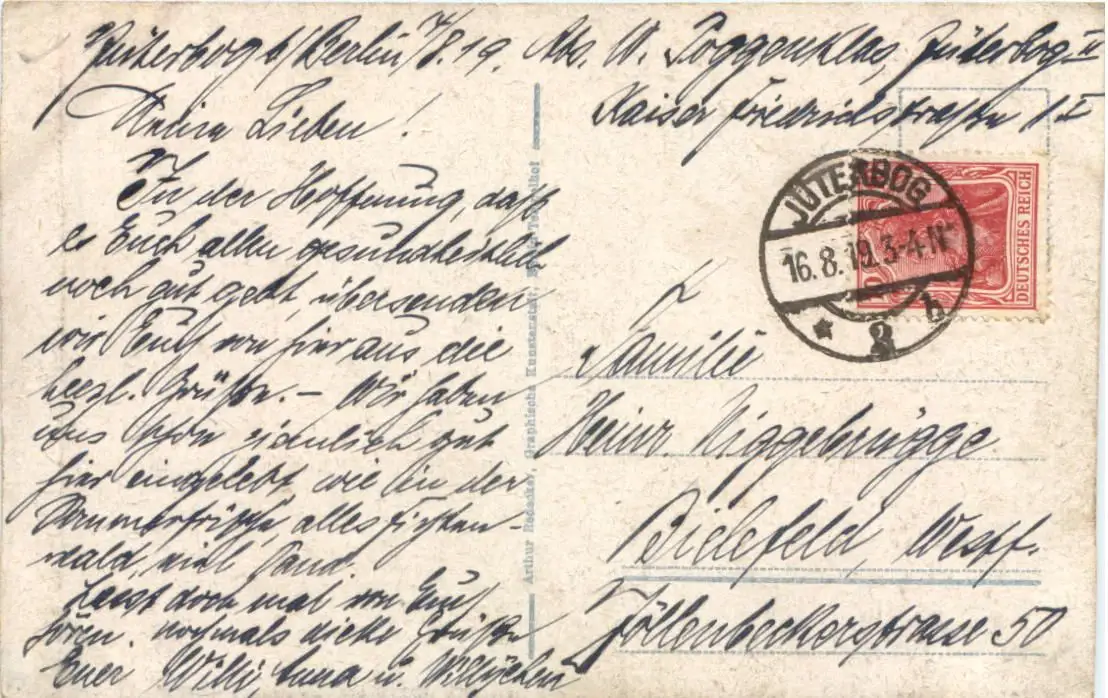 Jüterbog b/Berlin 14/8.19. Abs. W. Poggenklas, Jüterbog II
Kaiser Friedrichstrasse 1 I
Meine Lieben!
In der Hoffnung, daß
es Euch allen gesundheitlich
noch gut geht, übersenden
wir Euch von hier aus die
herzl. Grüße. – Wir haben
uns schon ziemlich gut
hier eingelebt wie in der
Sommerfrische, alles Fichten-
wald, viel Sand.
Lasst doch mal von Euch
hören. nochmals dicke Grüße
Euer Willi, Anna u. Willychen
Arthur Rebecke, Graphische Kunstanstalt, Berlin-Tempelhof
JÜTERBOG
16.8.19.3-4.N
* 2 h
DEUTSCHES REICH
10
Familie
Heinr. Niggebrügge
Bielefeld, Westf.
Jöllenbeckerstrasse 50